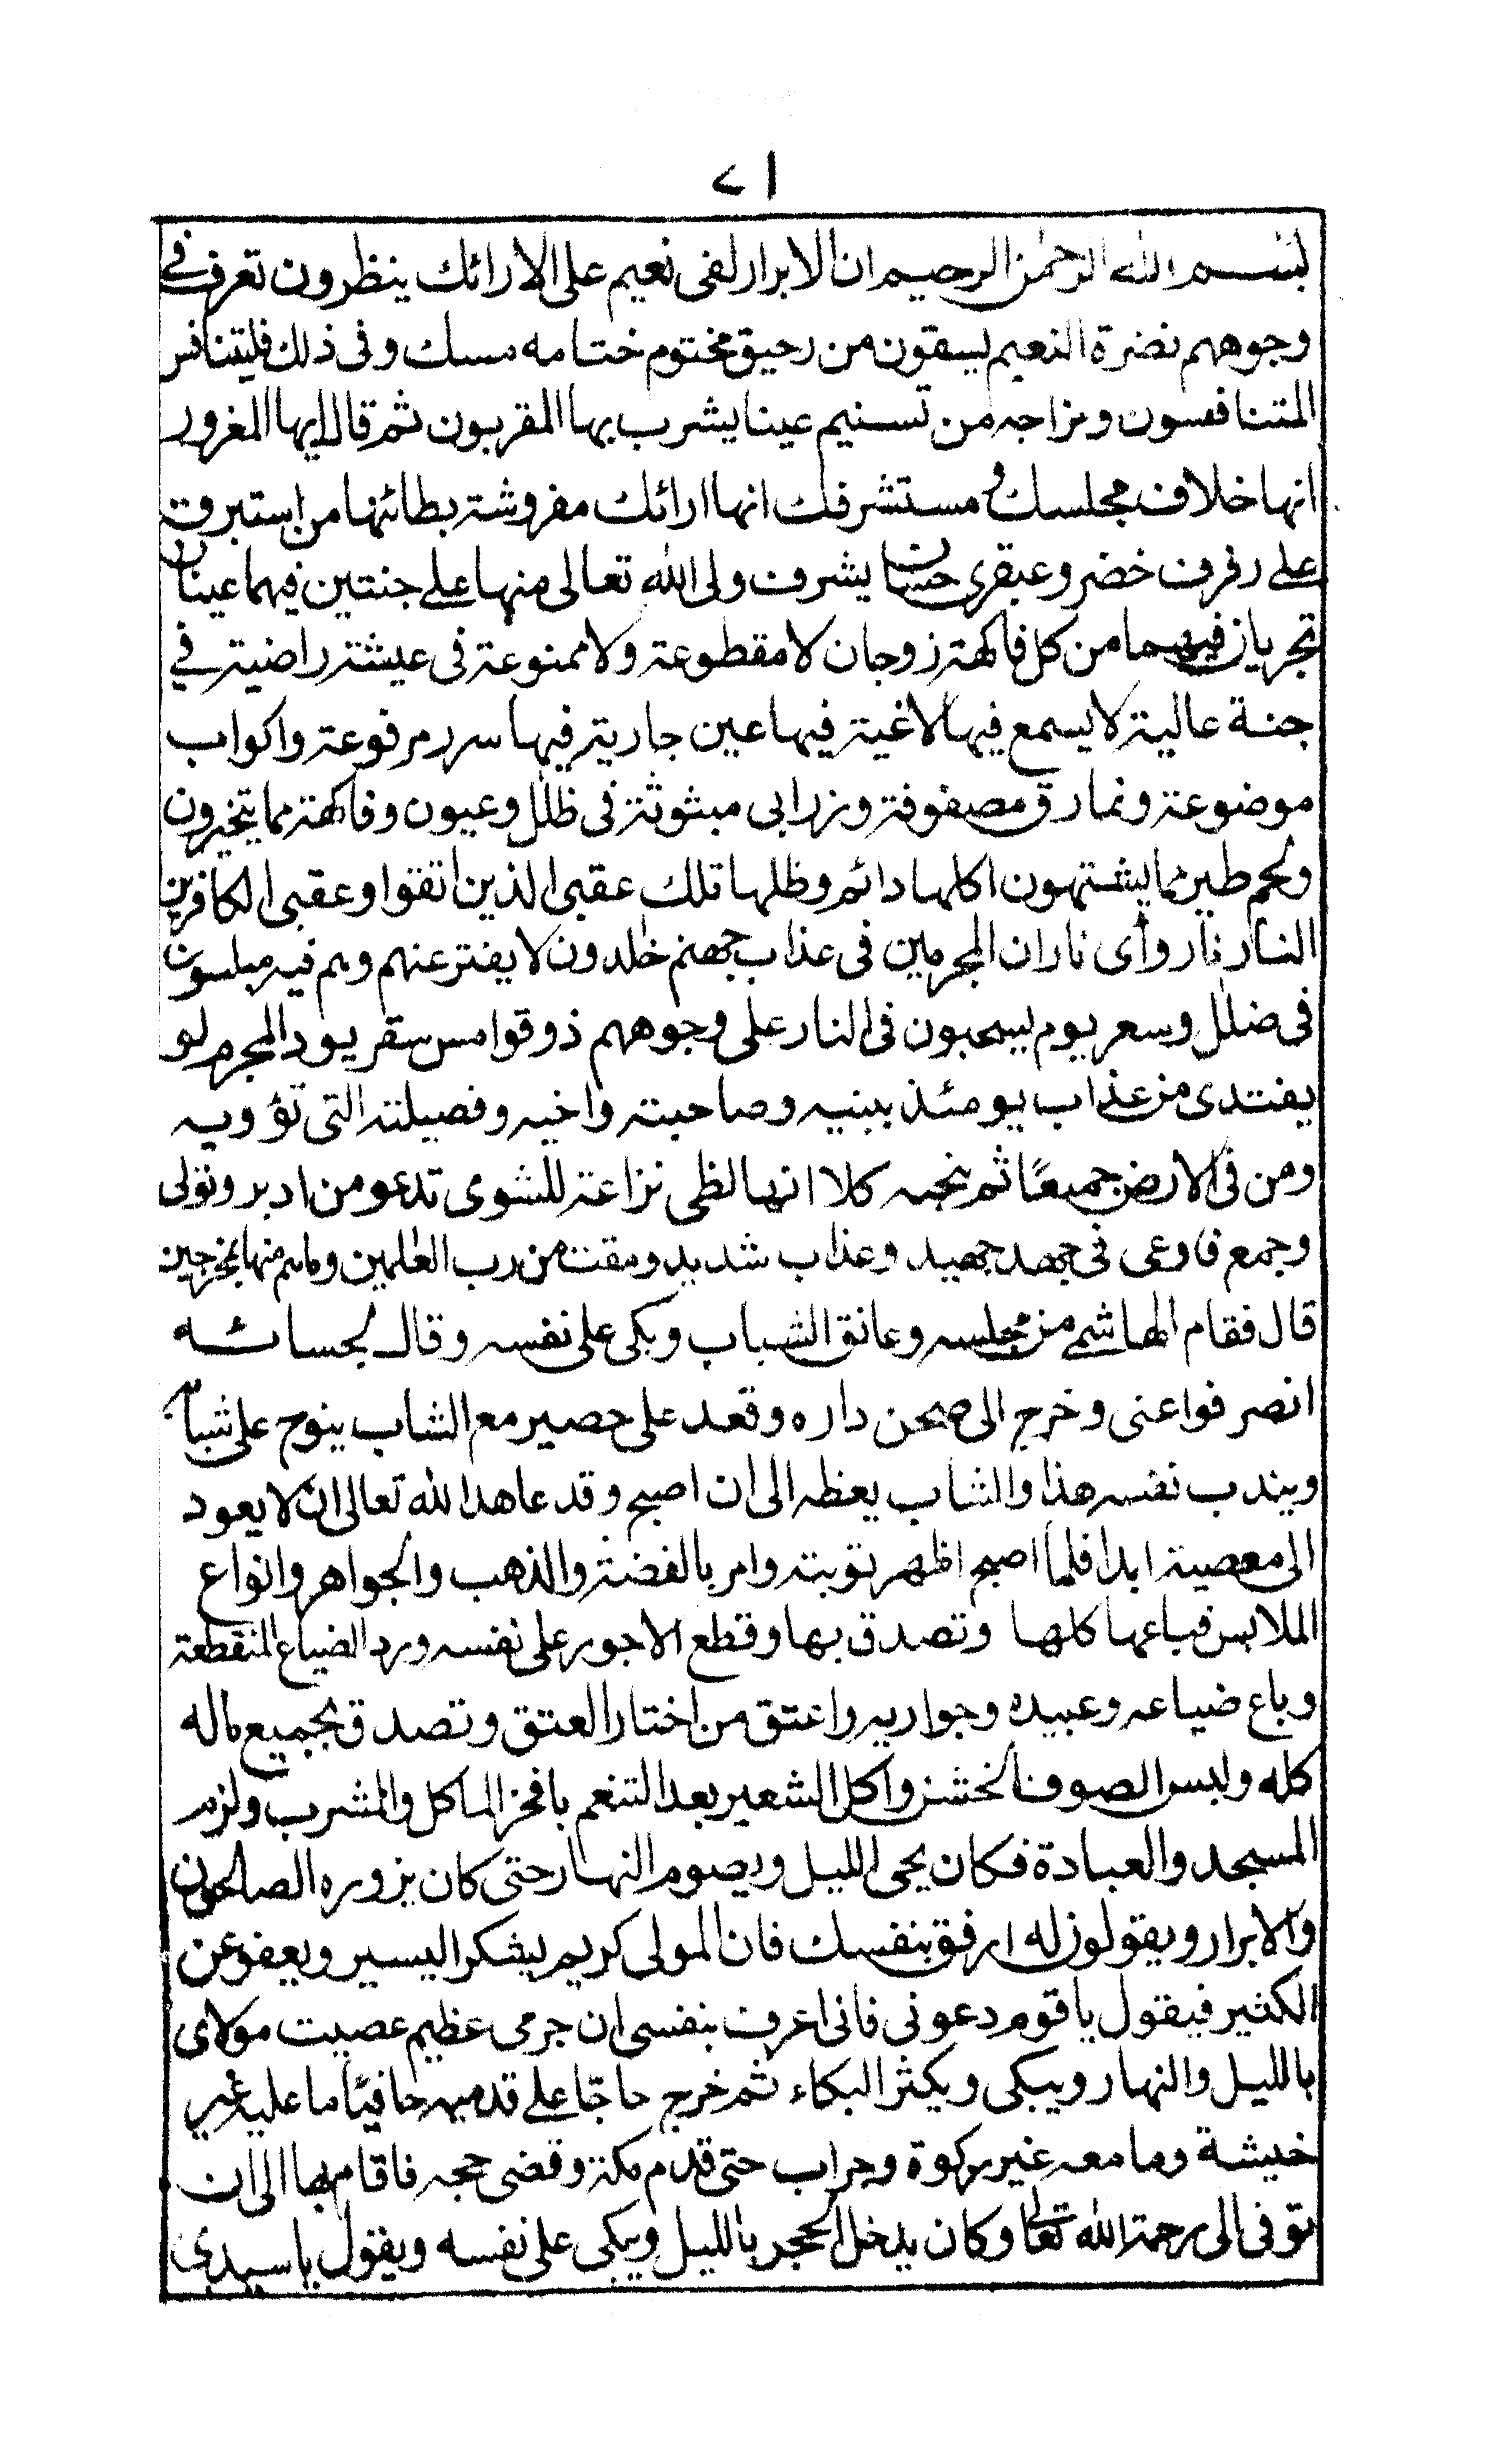 ٧١
بسم الله الرحمن الرحيم ان الابرار لفى نعيم على الارائك ينظرون تعرف في
وجوههم نضرة النعيم يسقون من رحيق مختوم ختامه مسك وفى ذلك فليتنافس
المتنافسون ومزاجه من تسنيم عينا يشرب بها المقربون ثم قال ايها المغرور
انها خلاف مجلسك و مستشرفك انها ارائك مفروشة بطائنها من استبرق
على رفرف خضر وعبقرى حسان يشرف ولى الله تعالى منها على جنتين فيهما عينان
تجريان فيهما من كل فاكهة زوجان لا مقطوعة ولا ممنوعة فى عيشة راضية في
جنة عالية لا يسمع فيها لاغية فيها عين جارية فيها سرر مرفوعة واكواب
موضوعة ونمارق مصفوفة وزرابى مبثوثة فى ظلل وعيون وفاكهة مما يتخيرون
ولحم طير مما يشتهون اكلها دائم وظلها تلك عقبى الذين اتقوا وعقبى الكافرين
النار نار وأى نار ان المجرمين فى عذاب جهنم خلدون لا يفتر عنهم وهم فيه مبلسون
فى ضلل وسعر يوم يسحبون فى النار على وجوههم ذوقوا مس سقر يود المجرم لو
يفتدى من عذاب يومئذ ببنيه وصاحبته واخيه وفصيلته التى تؤويه
ومن فى الارض جميعًا ثم ينجيه كلا انها لظى نزاعة للشوى تدعو من ادبر وتولى
وجمع فاوعى فى جهد جهيد وعذاب شديد ومقت من رب العلمين وماهم منها بمخرجين
قال فقام الهاشمي من مجلسه وعانق الشباب وبكى على نفسه وقال لجلسائه
انصرفوا عنى وخرج الى صحن داره وقعد على حصير مع الشاب ينوح على شبابه
ويندب نفسه هذا والشاب يعظه الى ان اصبح وقد عاهد الله تعالى ان لا يعود
الى معصية ابدا فلما اصبح اظهر توبته وامر بالفضة والذهب والجواهر وانواع
الملابس فباعها كلها وتصدق بها وقطع الاجور على نفسه ورد الضياع المنقطعة
وباع ضياعه وعبيده وجواريه واعتق من اختار العتق وتصدق بجميع ماله
كله ولبس الصوف الخشن واكل الشعير بعد التنعم بافخر الماكل والمشرب ولزم
المسجد والعبادة فكان يحى الليل ويصوم النهار حتى كان يزوره الصالحون
والابرار ويقولون له ارفق بنفسك فان المولى كريم يشكر اليسير ويعفو عن
الكثير فيقول يا قوم دعونى فانى اعرف بنفسى ان جرمى عظيم عصيت مولاى
بالليل والنهار ويبكى ويكثر البكاء ثم خرج حاجًا على قدميه حافيًا ما عليه غير
خيشة وما معه غير ركوة وجراب حتى قدم مكة وقضى حجه فاقام بها الى ان
توفى الى رحمة الله تعالى وكان يدخل الحجر بالليل ويبكى على نفسه ويقول يا سيدى